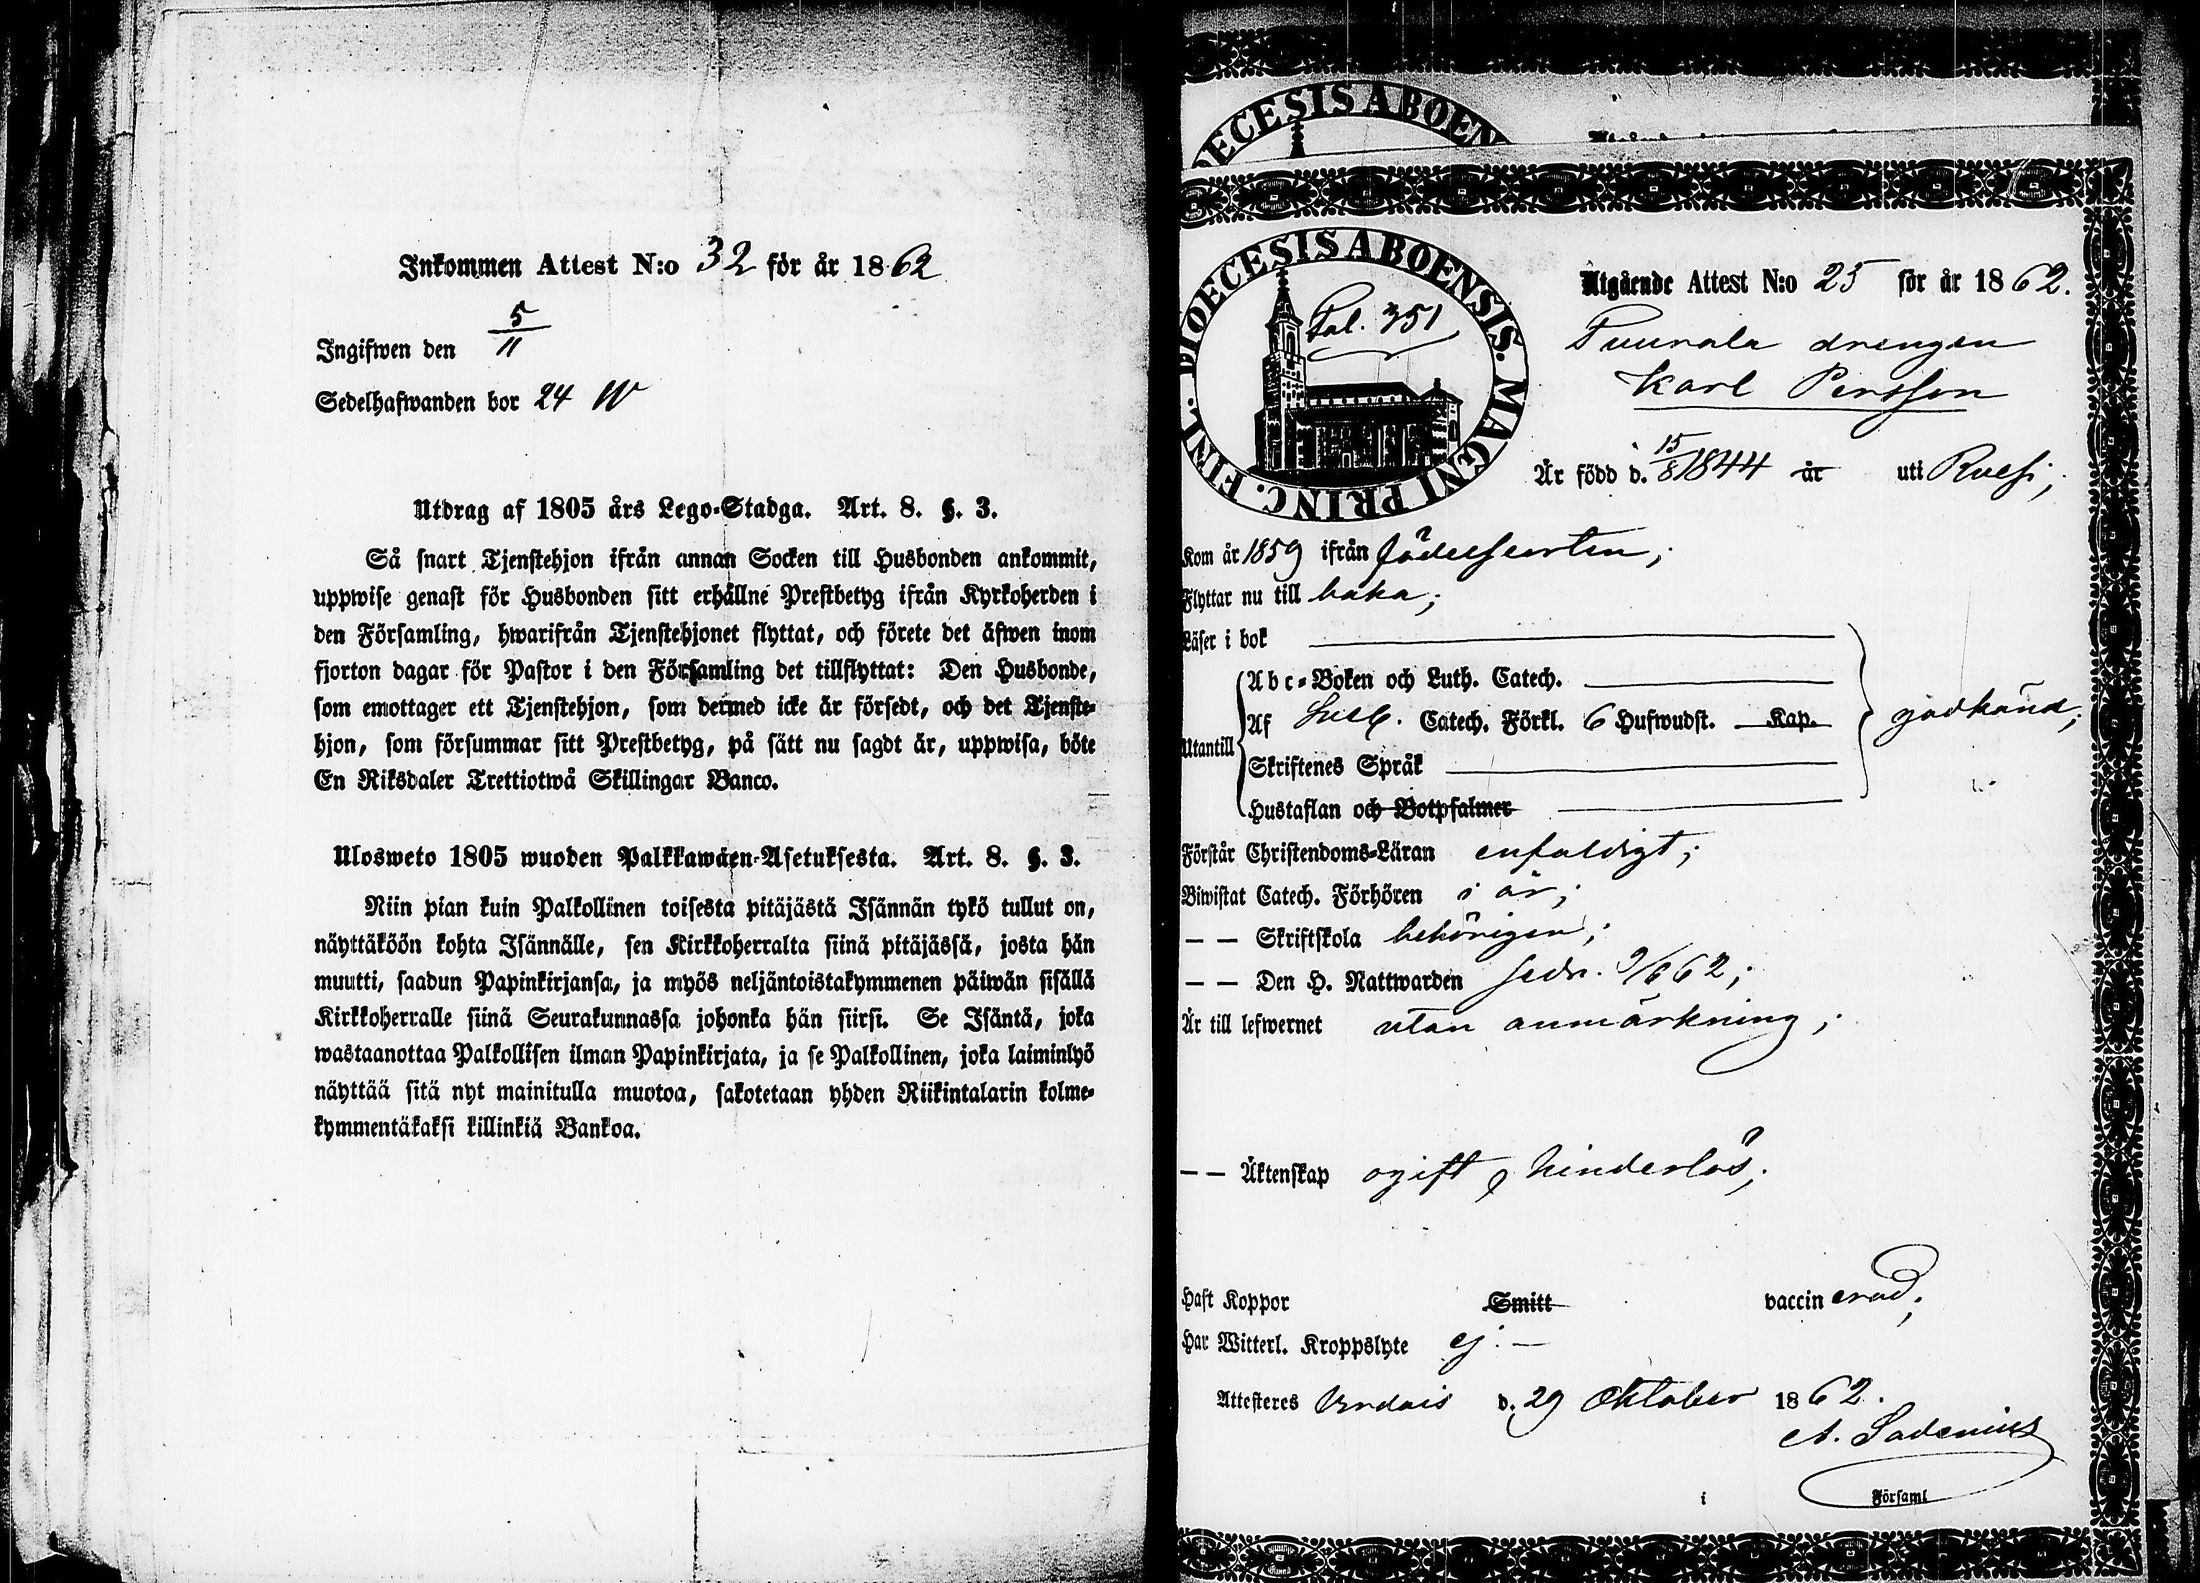 Inkommen Attest N:o 32 för år 1862
Ingifwen den 5/11
Sedelhafwanden bor 24 W
Utdrag af 1805 års Lego-Stadga. Art. 8. §. 3.
Så snart Tjenstehjon ifrån annan Socken till Husbonden ankommit,
uppwise genast för Husbonden sitt erhållne Prestbetyg ifrån Kyrkoherden i
den Församling, hwarifrån Tjenstehjonet flyttat, och förete det äfwen inom
fjorton dagar för Pastor i den Församling det tillflyttat: Den Husbonde,
som emottager ett Tjenstehjon, som dermed icke är försedt, och det Tjenste-
hjon, som försummar sitt Prestbetyg, på sätt nu sagdt är, uppwisa, böte
En Riksdaler Trettiotwå Skillingar Banco.
Ulosweto 1805 wuoden Palkkawäen-Asetuksesta. Art. 8. §. 3.
Niin pian kuin Palkollinen toisesta pitäjästä Isännän tykö tullut on,
näyttäköön kohta Isännälle, sen Kirkkoherralta siinä pitäjässä, josta hän
muutti, saadun Papinkirjansa, ja myös neljäntoistakymmenen päiwän sisällä
Kirkkoherralle siinä Seurakunnassa johonka hän siirsi. Se Isäntä, joka
wastaanottaa Palkollisen ilman Papinkirjata, ja se Palkollinen, joka laiminlyö
näyttää sitä nyt mainitulla muotoa, sakotetaan yhden Riikintalarin kolme-
kymmentäkaksi killinkiä Bankoa.
DIOECESIS ABOEN
DIOECESIS ABOENSIS. MAGNI PRINC. FINL.
Fol. 351
Utgående Attest N:o 25 för år 1862.
Tuurala drengen
Karl Persson
Är född d. 15/8 1844 år uti Ruesi;
Kom år 1859 ifrån födelseorten;
Flyttar nu till baka;
Läser i bok
Utantill
Abc-Boken och Luth. Catech.
Af Catech. Förkl. 6 Hufwudst. Kap.
godkänd;
Skriftenes Språk
Hustaflan och Botpsalmer
Förstår Christendoms-Läran enfaldigt;
Biwistat Catech. Förhören i år;
— — Skriftskola behörigen;
— — Den H. Nattwarden sedn. 9/6 62;
Är till lefwernet utan anmärkning;
— — Äktenskap ogift, hinderlös;
Haft Koppor Smitt vaccinerad;
Har Witterl. Kroppslyte ej. —
Attesteres Virdois d. 29 Oktober 1862.
A. Sadenius
i Församl